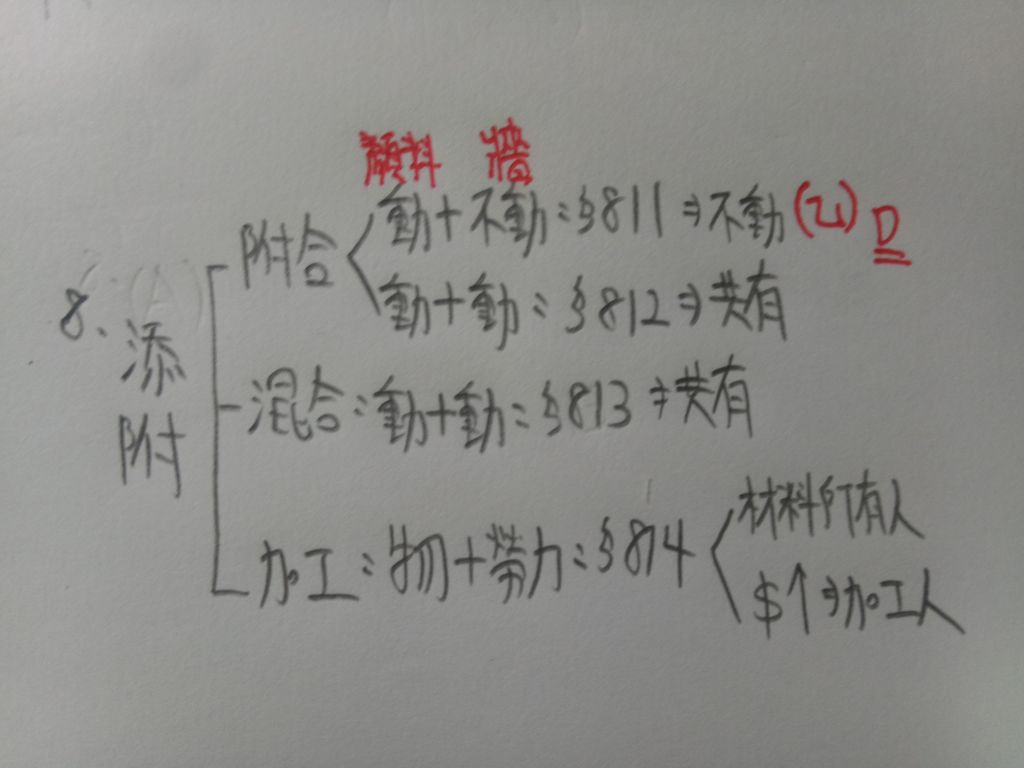 顏料 牆
附合 動+不動：§811⇒不動(乙) D
動+動：§812⇒共有
8. 添附
混合：動+動：§813⇒共有
材料所有人
加工：物+勞力：§814
$↑⇒加工人